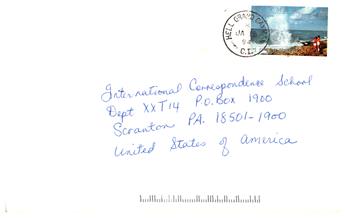 HELL GRAND CAY
JA
94
C.I.
International Correspondence School
Dept XXT14 P.O. Box 1900
Scranton PA. 18501-1900
United States of America